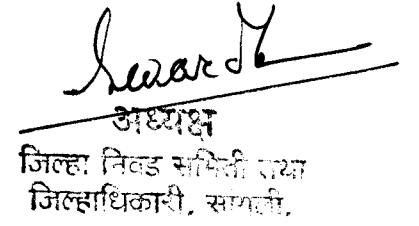 अध्यक्ष
जिल्हा निवड समिती तथा
जिल्हाधिकारी, सांगली.